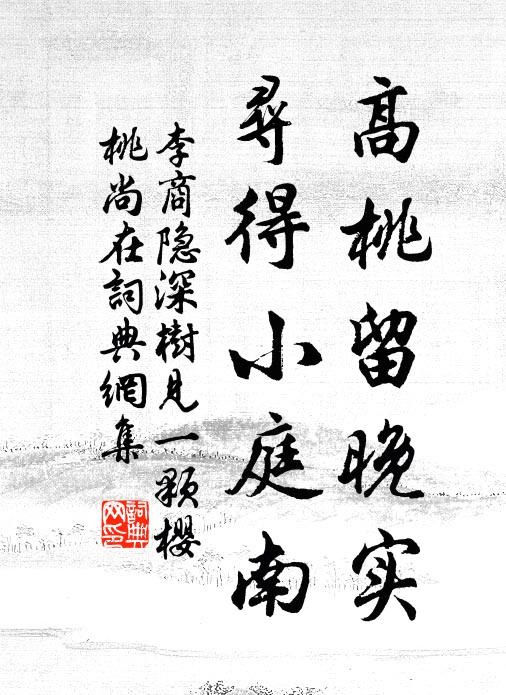 高桃留晚实
尋得小庭南
李商隐深樹见一颗櫻
桃尚在詞典網集
詞典网印